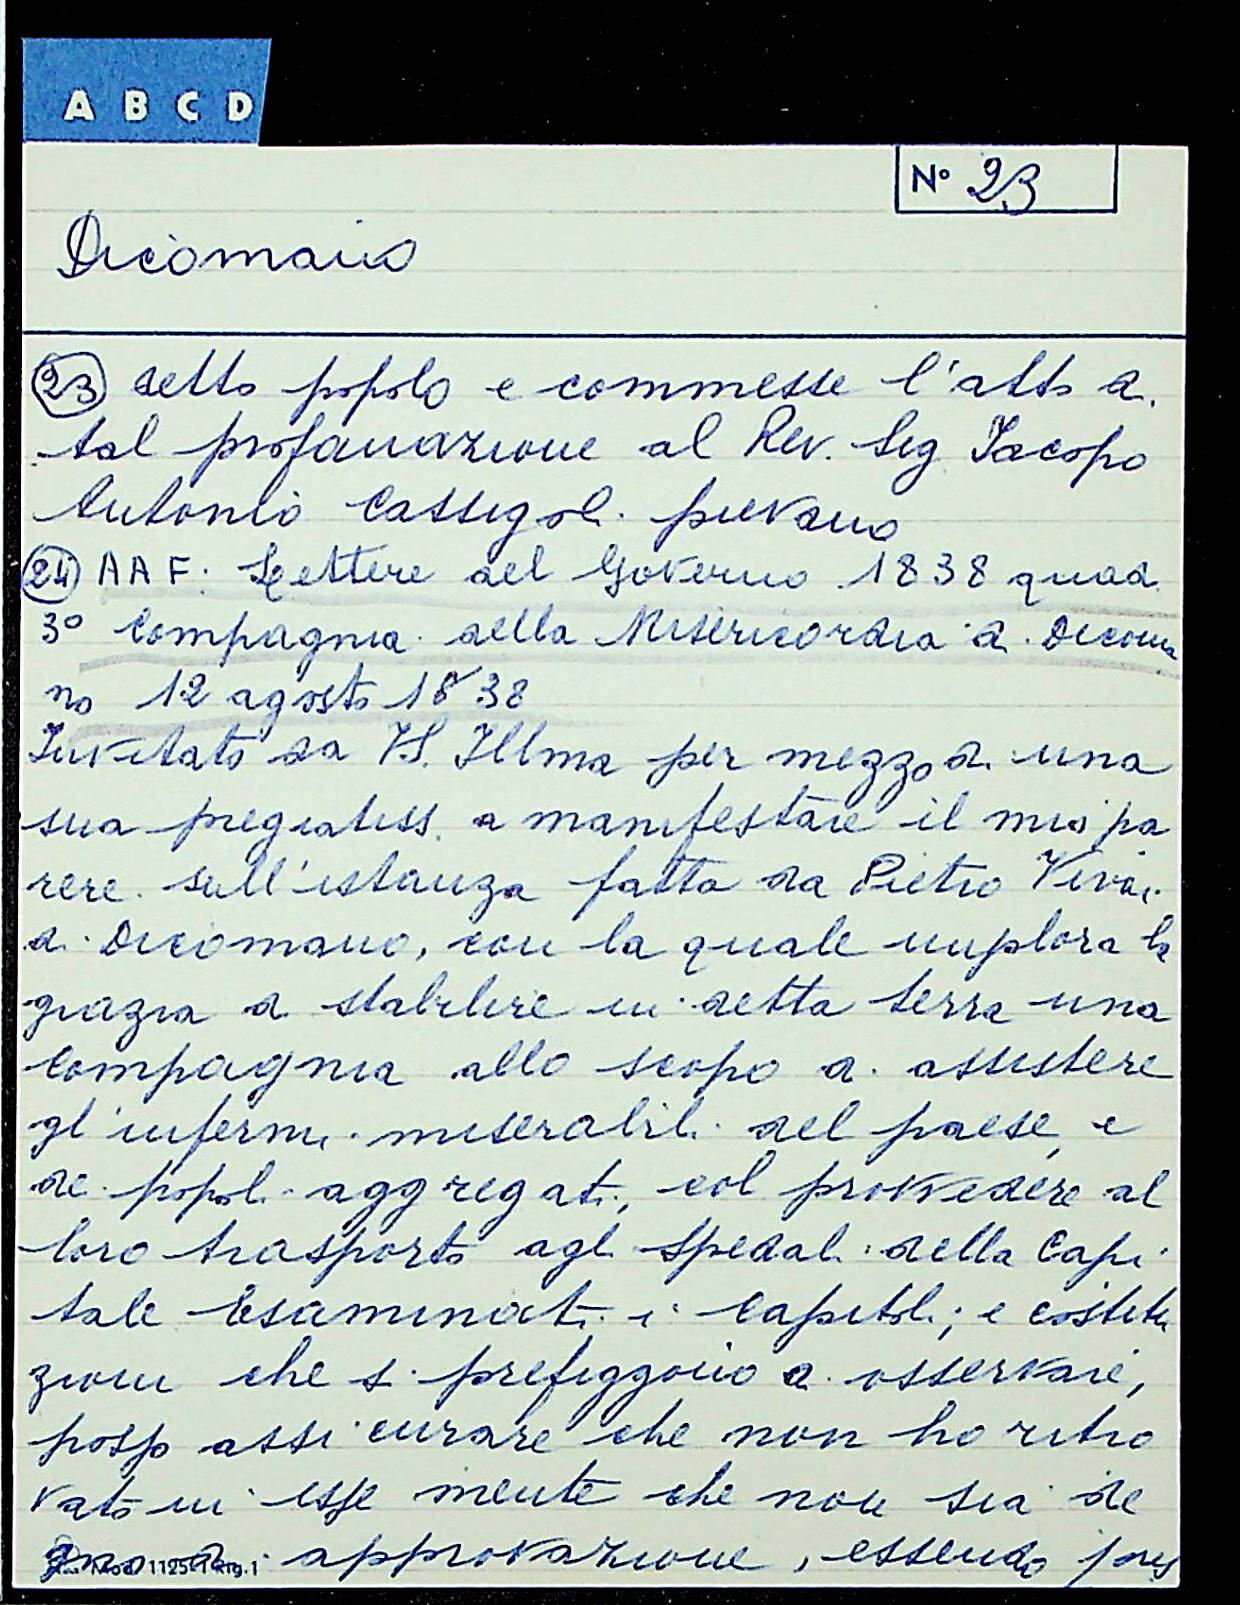 A B C D
N° 23
Dicomano
(23) detto popolo e commesse l'atto di
tal profanazione al Rev. Sig Jacopo
Antonio Cassigoli pievano
(24) AAF. Lettere del Governo 1838 quad
3° Compagnia della Misericordia di Dicoma
no 12 agosto 1838
Invitato da VS. Illma per mezzo di una
sua pregiatiss. a manifestare il mio pa
rere sull'istanza fatta da Pietro Vivai
di Dicomano, con la quale implora la
grazia di stabilire in detta terra una
Compagnia allo scopo di assistere
gl'infermi miserabili del paese, e
de popoli aggregati, col provvedere al
loro trasporto agli Spedali della Capi
tale Esaminati i Capitoli; e costitu
zioni che si prefiggono di osservare,
posso assicurare che non ho ritro
vato in esse niente che non sia de
gno di approvazione, essendo
Mod. 1125 Rig. 1